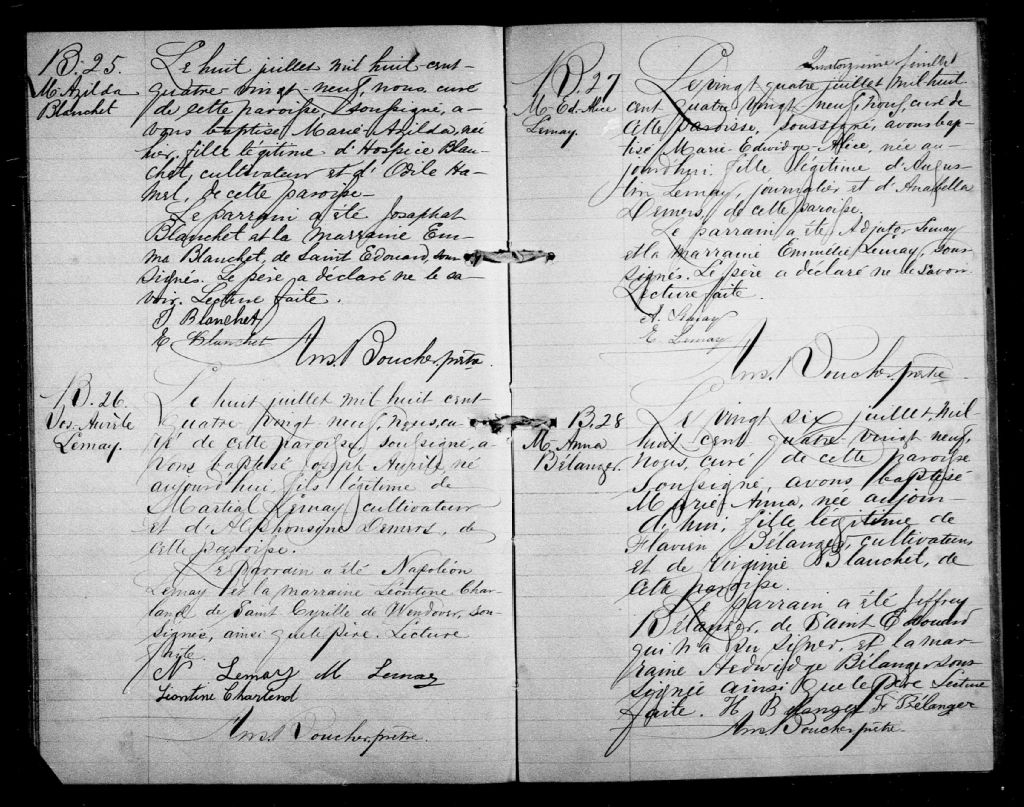 B. 25.
M. Azilda
Blanchet
Le huit juillet mil huit-cent-
quatre vingt-neuf, nous, curé
de cette paroisse, soussigné, a-
vons baptisé Marie-Azilda, née
hier, fille légitime d'Hospice Blan-
chet, cultivateur et d'Odile Ha-
mel, de cette paroisse-
Le parrain a été Josaphat
Blanchet et la marraine Em-
ma Blanchet, de Saint Edouard, sous-
signés. Le père a déclaré ne le sa-
voir. Lecture faite.
J Blanchet
E Blanchet
Ans. Boucher, ptre.
B. 26.
Jos. Aurile
Lemay.
Le huit juillet mil huit cent
quatre vingt neuf, nous, cu-
ré de cette paroisse, soussigné, a-
vons baptisé Joseph Aurile, né
aujourd'hui, fils légitime de
Martial Lemay, cultivateur
et d'Alphonsine Demers, de
cette paroisse.
Le parrain a été Napoléon
Lemay et la marraine Léontine Char-
land de Saint Cyrille de Wendover, sous-
signés, ainsi que le père. Lecture
faite.
N Lemay M Lemay
Léontine Charlend
Ans. Boucher, prêtre.
Quatorzième feuillet
B. 27
M. Ed. Alice
Lemay.
Le vingt quatre juillet mil huit
cent quatre vingt neuf, nous, curé de
cette paroisse, soussigné, avons bap-
tisé Marie-Edwidge-Alice, née au-
jourd'hui, fille légitime d'Augus-
tin Lemay, journalier et d'Anabella
Demers, de cette paroisse.
Le parrain a été Adjutor Lemay
et la marraine Emmélie Lemay, sous-
signés. Le père a déclaré ne le savoir.
Lecture faite.
A. Lemay
E. Lemay
Ans. Boucher, prêtre
B. 28
M. Anna
Bélanger.
Le vingt six juillet mil
huit cent quatre vingt neuf,
nous, curé de cette paroisse
soussigné, avons baptisé
Marie Anna, née aujour-
d'hui, fille légitime de
Flavien Bélanger, cultivateur
et de Virginie Blanchet, de
cette paroisse.
Le parrain a été Jeffrey
Bélanger, de Saint Edouard
qui n'a su signer, et la mar-
raine Hedwidge Bélanger sous-
signée ainsi que le père Lecture
faite. H Bélanger F. Bélanger
Ans Boucher, prêtre.